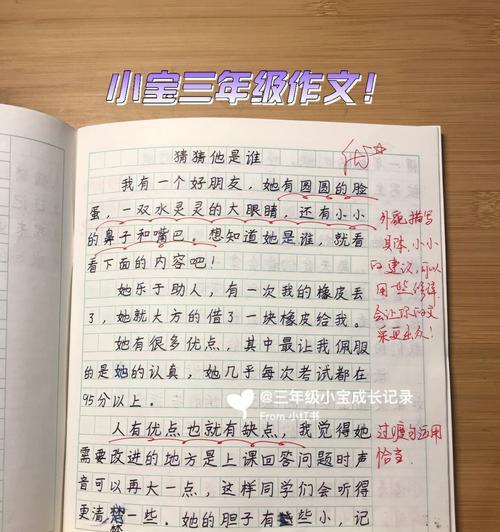 小宝三年级作文！
猜猜他是谁
优5☆
我有一个好朋友，她有圆圆的脸
蛋，一双水灵灵的大眼睛，还有小小
的鼻子和嘴巴。想知道她是谁，就看
看下面的内容吧！
外貌描写
具体，小小
的建议，可以
用些修辞
会让你的文
采更出众！
她乐于助人，有一次我的橡皮丢
了，她就大方的借了一块橡皮给我。
她有很多优点，其中最让我佩服
的是她的认真，她几乎每次考试都在
95分以上。
@三年级小宝成长记录
From 小红书
人有优点也就有缺点，我觉得她
需要改进的地方是上课回答问题时声
音可以再大一点，这样同学们会听得
更清楚一些。她的胆子有些小，记
过渡句运用
恰当